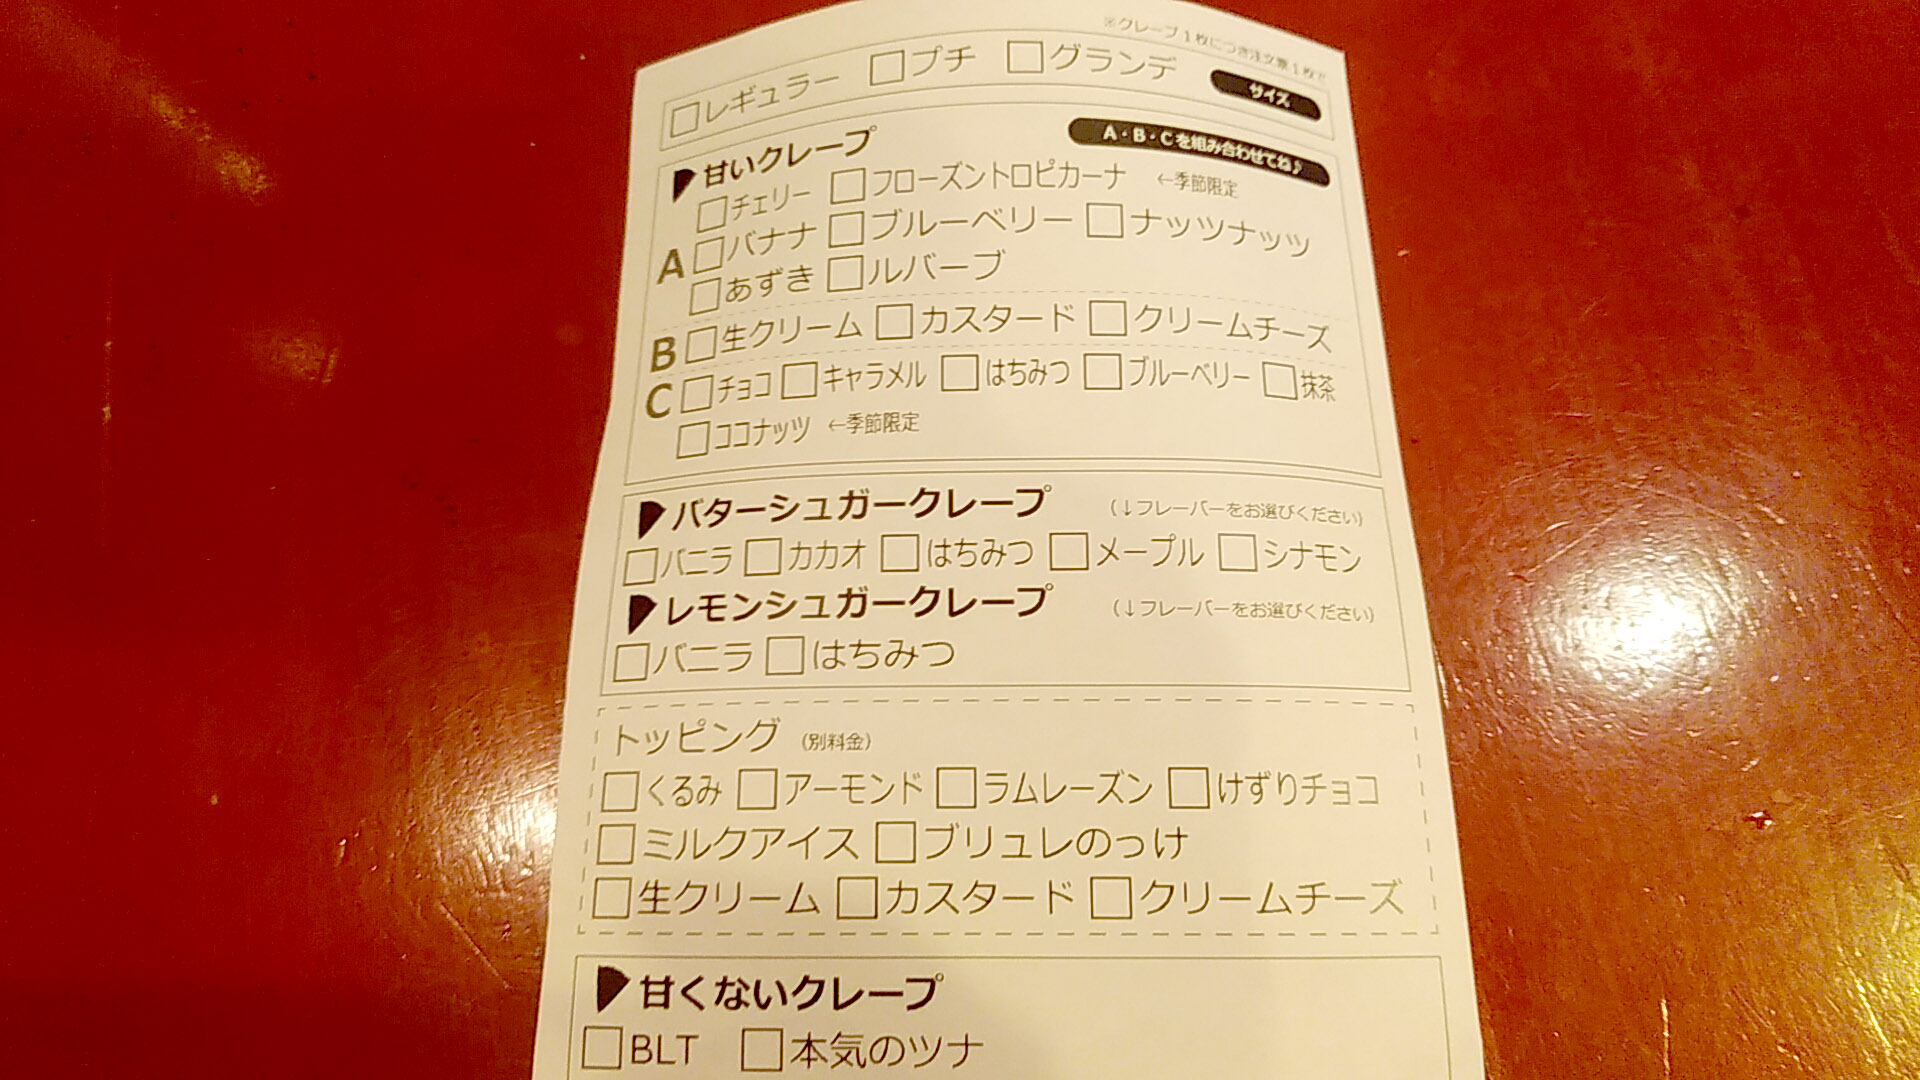 ※クレープ1枚につき注文票1枚です
□レギュラー □プチ □グランデ サイズ
甘いクレープ A・B・Cを組み合わせてね♪
□チェリー □フローズントロピカーナ ←季節限定
A □バナナ □ブルーベリー □ナッツナッツ
□あずき □ルバーブ
B □生クリーム □カスタード □クリームチーズ
C □チョコ □キャラメル □はちみつ □ブルーベリー □抹茶
□ココナッツ ←季節限定
バターシュガークレープ (↓フレーバーをお選びください)
□バニラ □カカオ □はちみつ □メープル □シナモン
レモンシュガークレープ (↓フレーバーをお選びください)
□バニラ □はちみつ
トッピング (別料金)
□くるみ □アーモンド □ラムレーズン □けずりチョコ
□ミルクアイス □ブリュレのっけ
□生クリーム □カスタード □クリームチーズ
甘くないクレープ
□BLT □本気のツナ